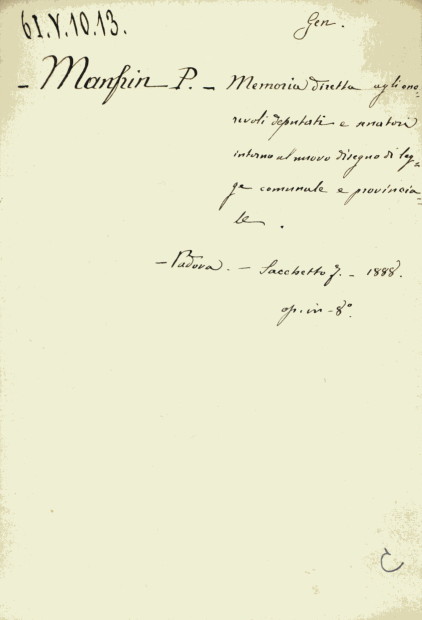 61.V.10.13.
Gen.
- Manfrin P. - Memoria diretta agli ono-
revoli deputati e senatori
intorno al nuovo disegno di leg-
ge comunale e provincia-
le.
- Padova. - Sacchetto f. - 1888.
op. in - 8°.